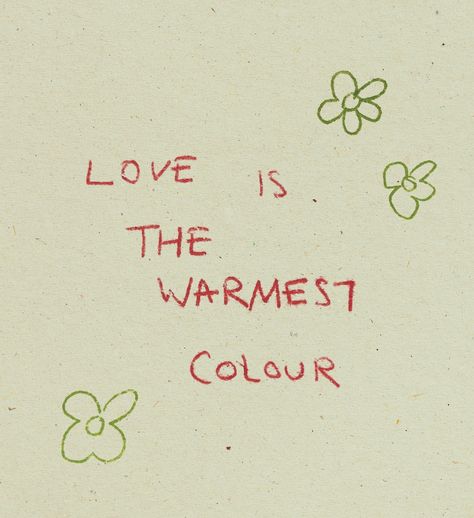 LOVE IS
THE
WARMEST
COLOUR